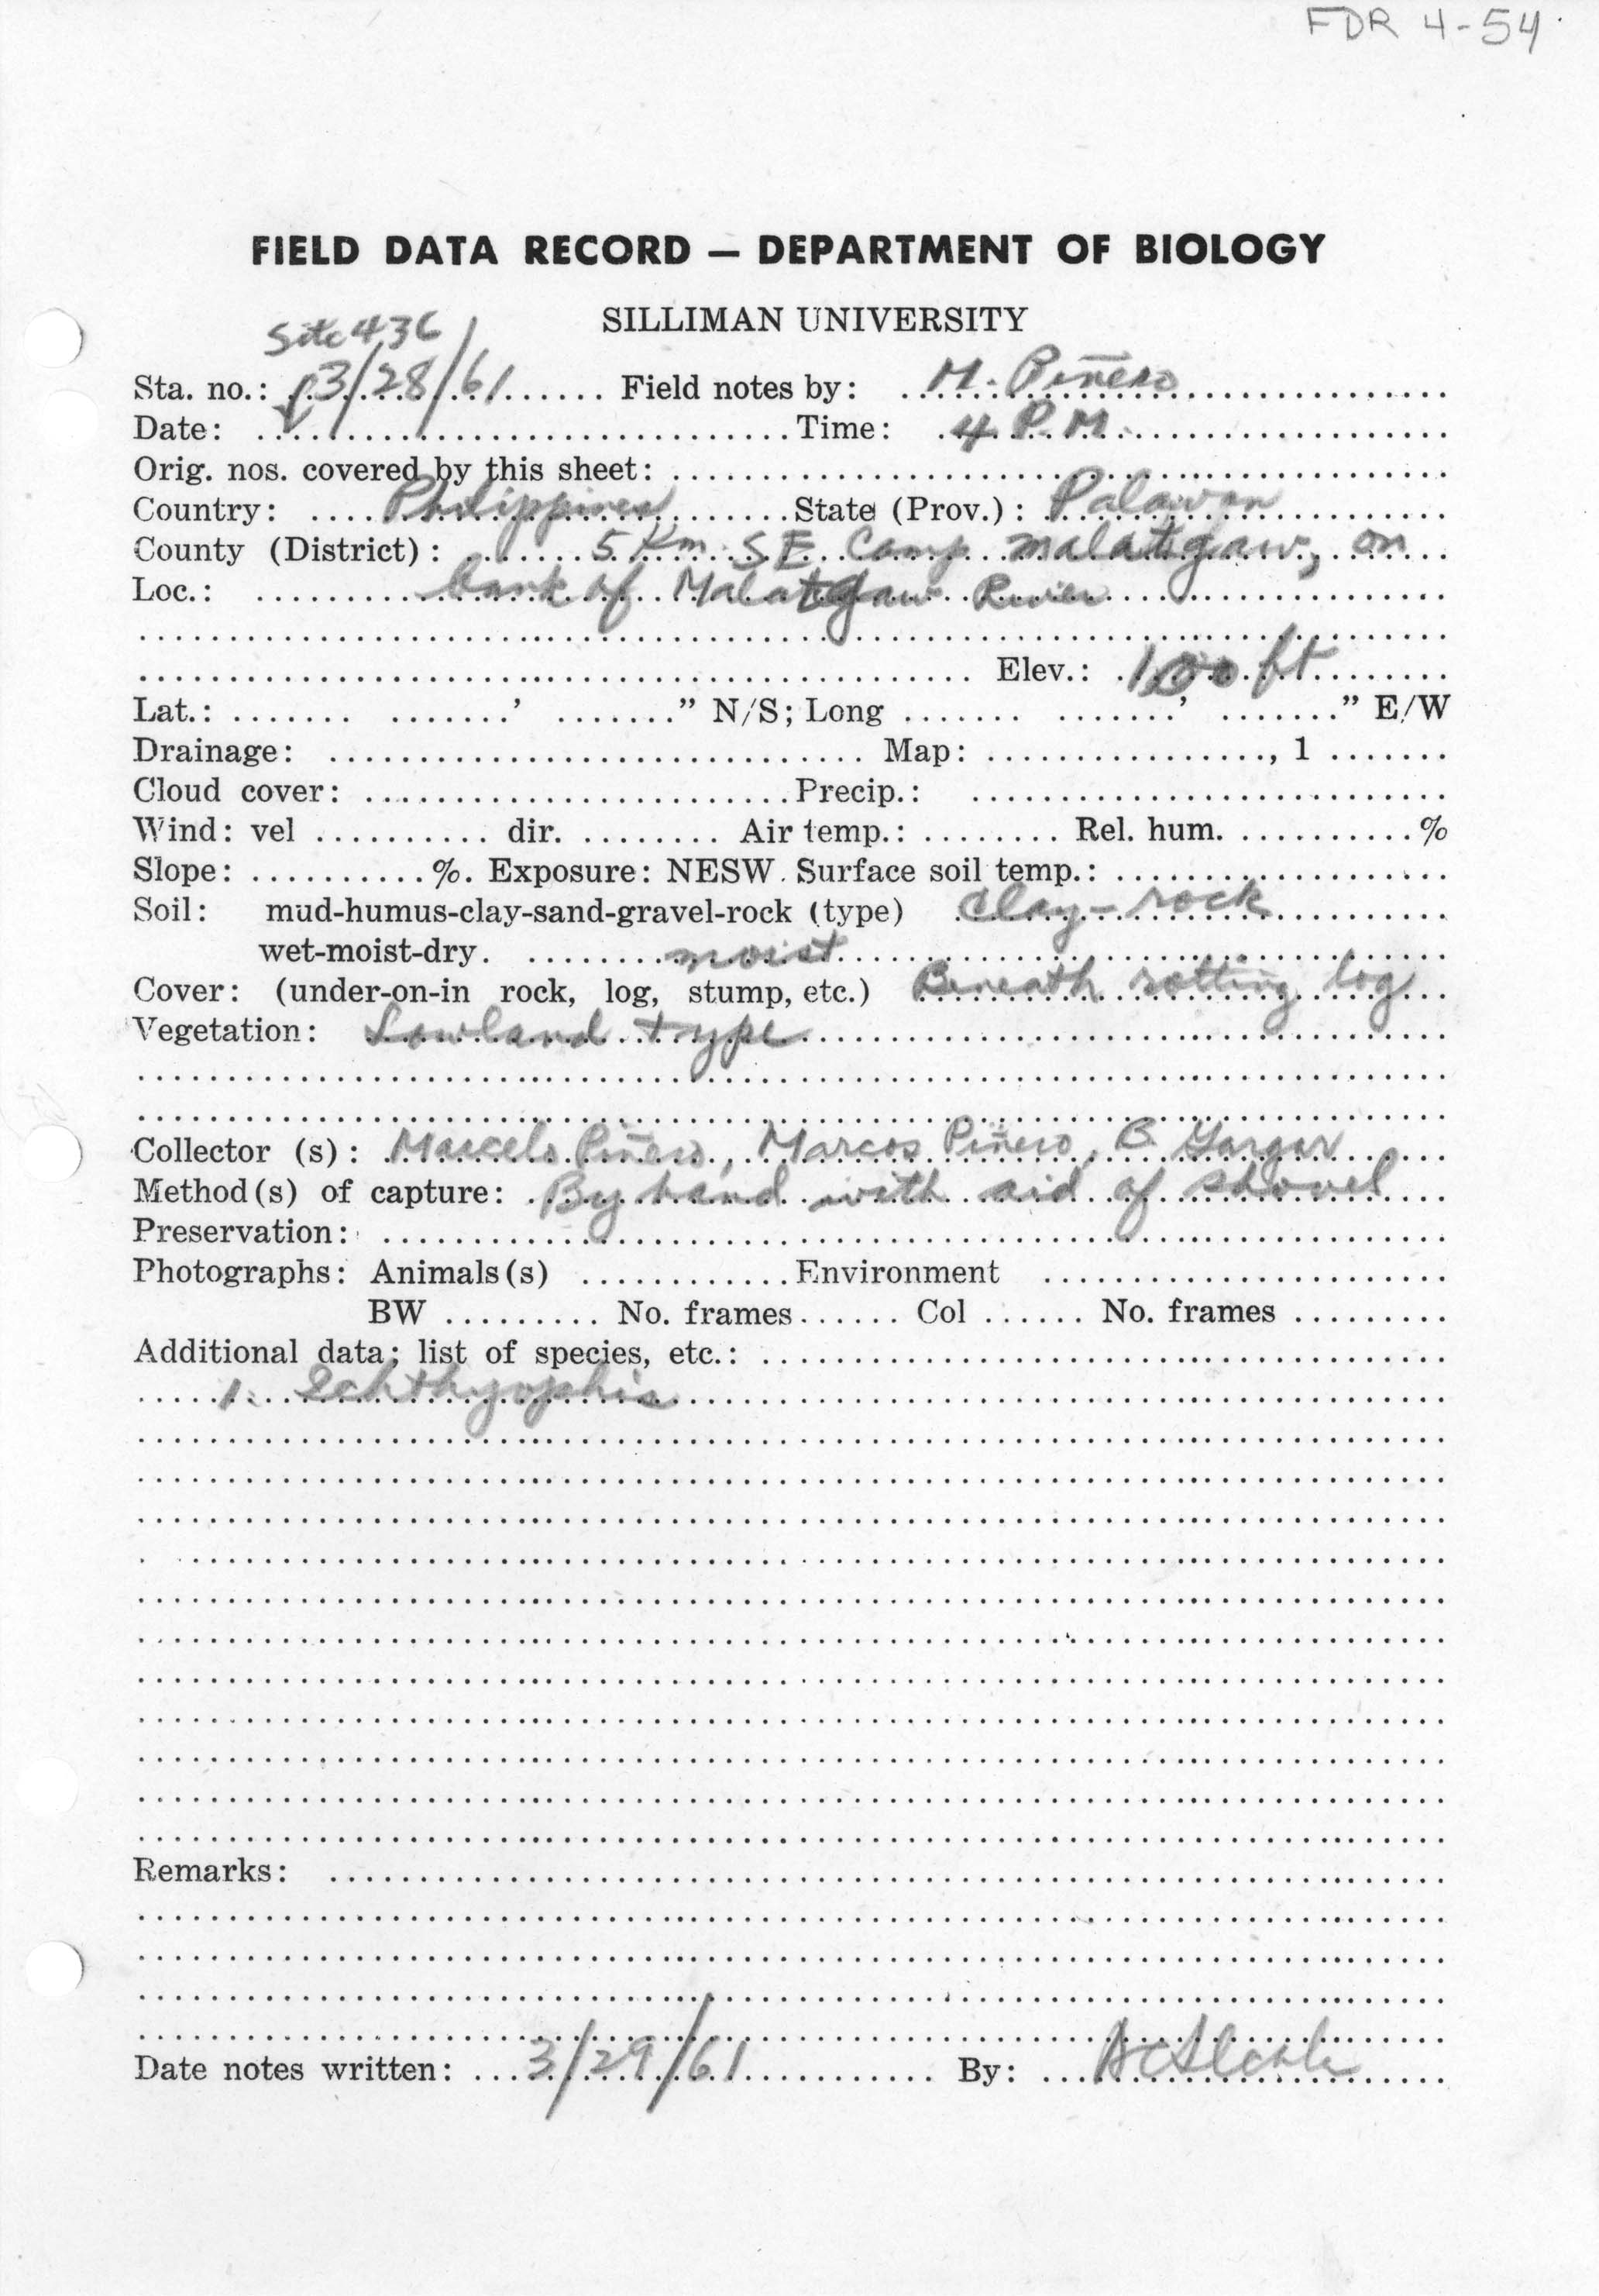 FDR 4-54
FIELD DATA RECORD — DEPARTMENT OF BIOLOGY
SILLIMAN UNIVERSITY
Site 436
Sta. no.: 3/28/61 Field notes by: M. Piñero
Date: Time: 4 P.M.
Orig. nos. covered by this sheet:
Country: Philippines State (Prov.): Palawan
County (District): 5 Km SE Camp Malatgaw, on
Loc.: bank of Malatgaw River
Elev.: 100 ft
Lat.: ' " N/S; Long ' " E/W
Drainage: Map: , 1
Cloud cover: Precip.:
Wind: vel dir. Air temp.: Rel. hum. %
Slope: %. Exposure: NESW. Surface soil temp.:
Soil: mud-humus-clay-sand-gravel-rock (type) Clay-rock
wet-moist-dry. moist
Cover: (under-on-in rock, log, stump, etc.) Beneath rotting log
Vegetation: Lowland type
Collector (s): Marcelo Piñero, Marcos Piñero, B. Gargar
Method(s) of capture: By hand with aid of shovel
Preservation:
Photographs: Animals(s) Environment
BW No. frames Col No. frames
Additional data; list of species, etc.:
1. Ichthyophis
Remarks:
Date notes written: 3/29/61 By: